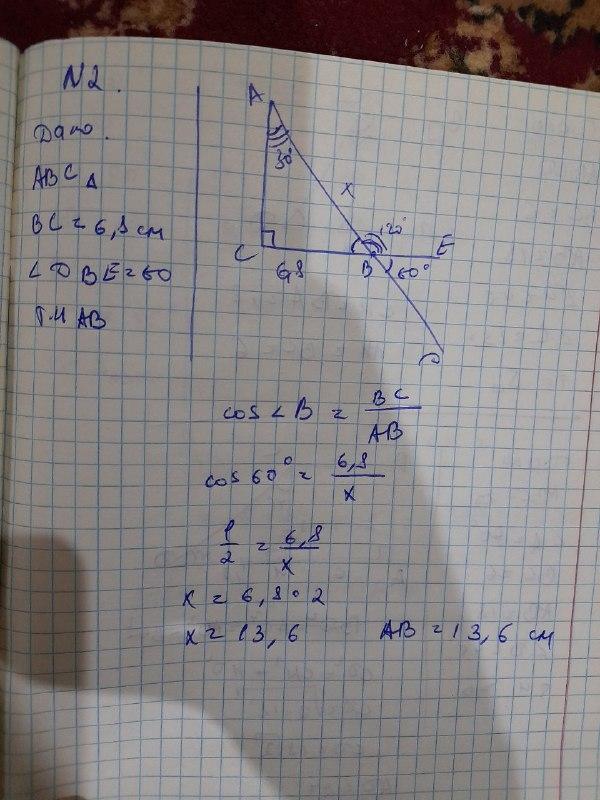 N2.
Дано.
ABC △
BC = 6,8 см
∠DBE=60
Т.Н AB
A
30°
x
C
6,8
120°
B
60°
E
D
cos∠B = BC/AB
cos60° = 6,8/x
1/2 = 6,8/x
x = 6,8∘2
x = 13,6
AB = 13,6 см